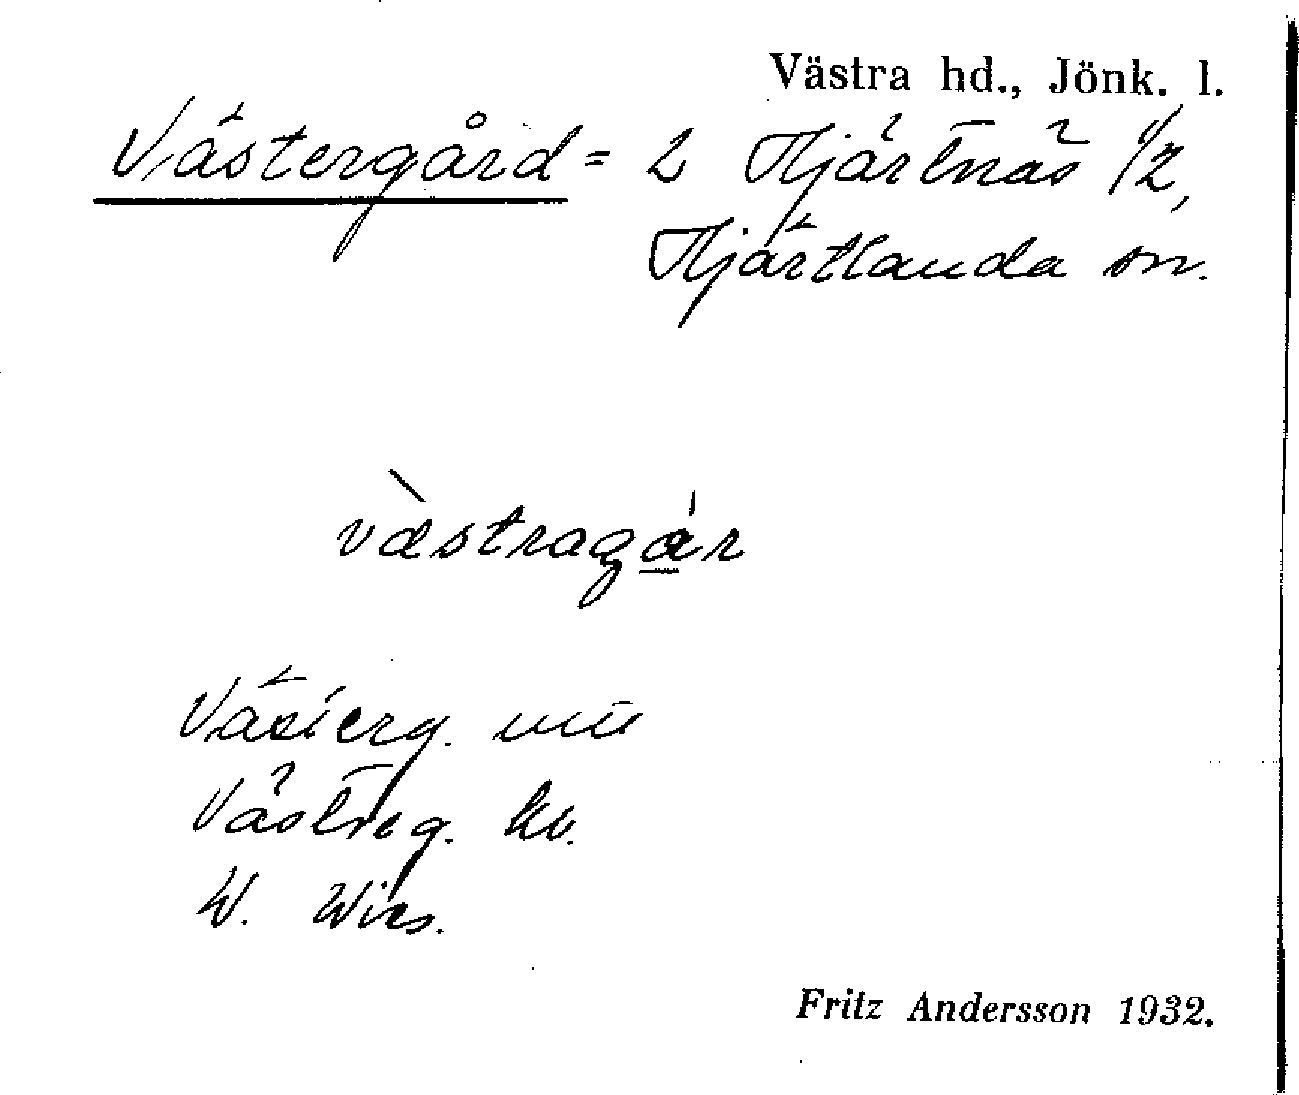 Västra hd., Jönk. l.
Västergård = 2 Hjärtnäs 1/2,
Hjärtlanda sn.
væ̀stragá̱r
Västerg.
Västreg. kb.
W.
Fritz Andersson 1932.